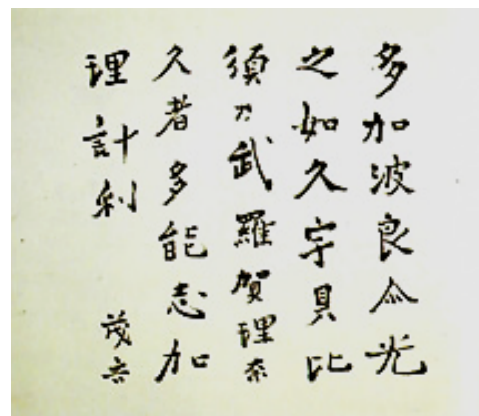 多加波良尒光
之如久宇具比
須乃武羅賀理奈
久者多能志加
理計利
茂吉